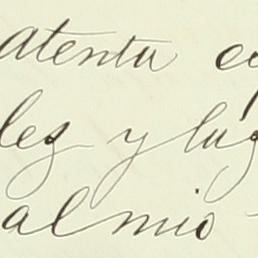 atenta
les y lug
al mio